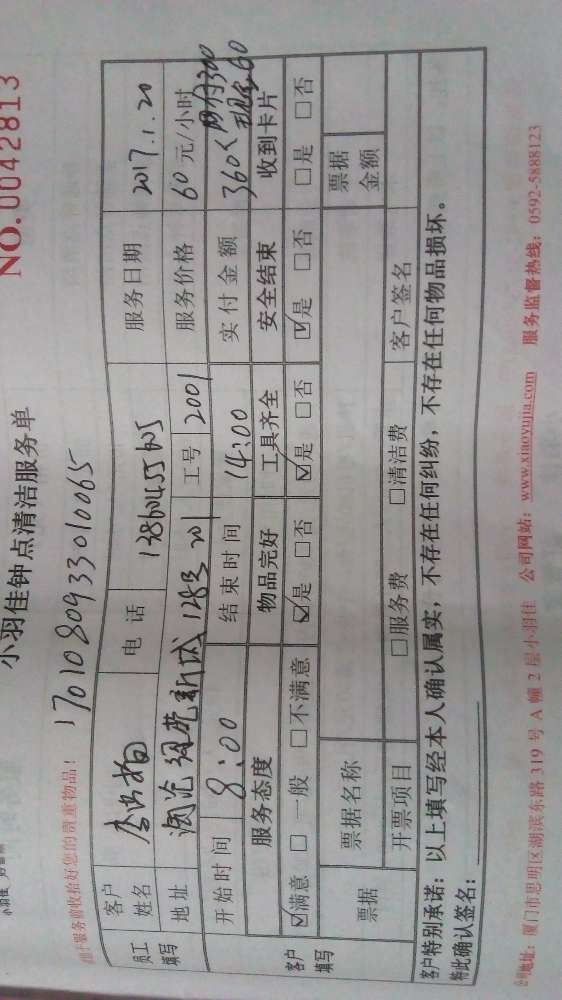 NO.0042813
小羽佳钟点清洁服务单
1701080933010065
服务前收拾好您的贵重物品！
员工填写
客户姓名 李 电话 服务日期 2017.1.20
地址 新城 128号 201 工号 2001 服务价格 60元/小时
客户填写
开始时间 8:00 结束时间 14:00 实付金额 360
服务态度 物品完好 工具齐全 安全结束 收到卡片
☑满意 □一般 □不满意 ☑是 □否 ☑是 □否 ☑是 □否 □是 □否
票据 票据名称 票据金额
开票项目 □服务费 □清洁费 客户签名
客户特别承诺：以上填写经本人确认属实，不存在任何纠纷，不存在任何物品损坏。
特此确认签名：
公司地址：厦门市思明区湖滨东路 319 号 A 幢 2 层小羽佳 公司网站：www.xiaoyujia.com 服务监督热线：0592-5888123